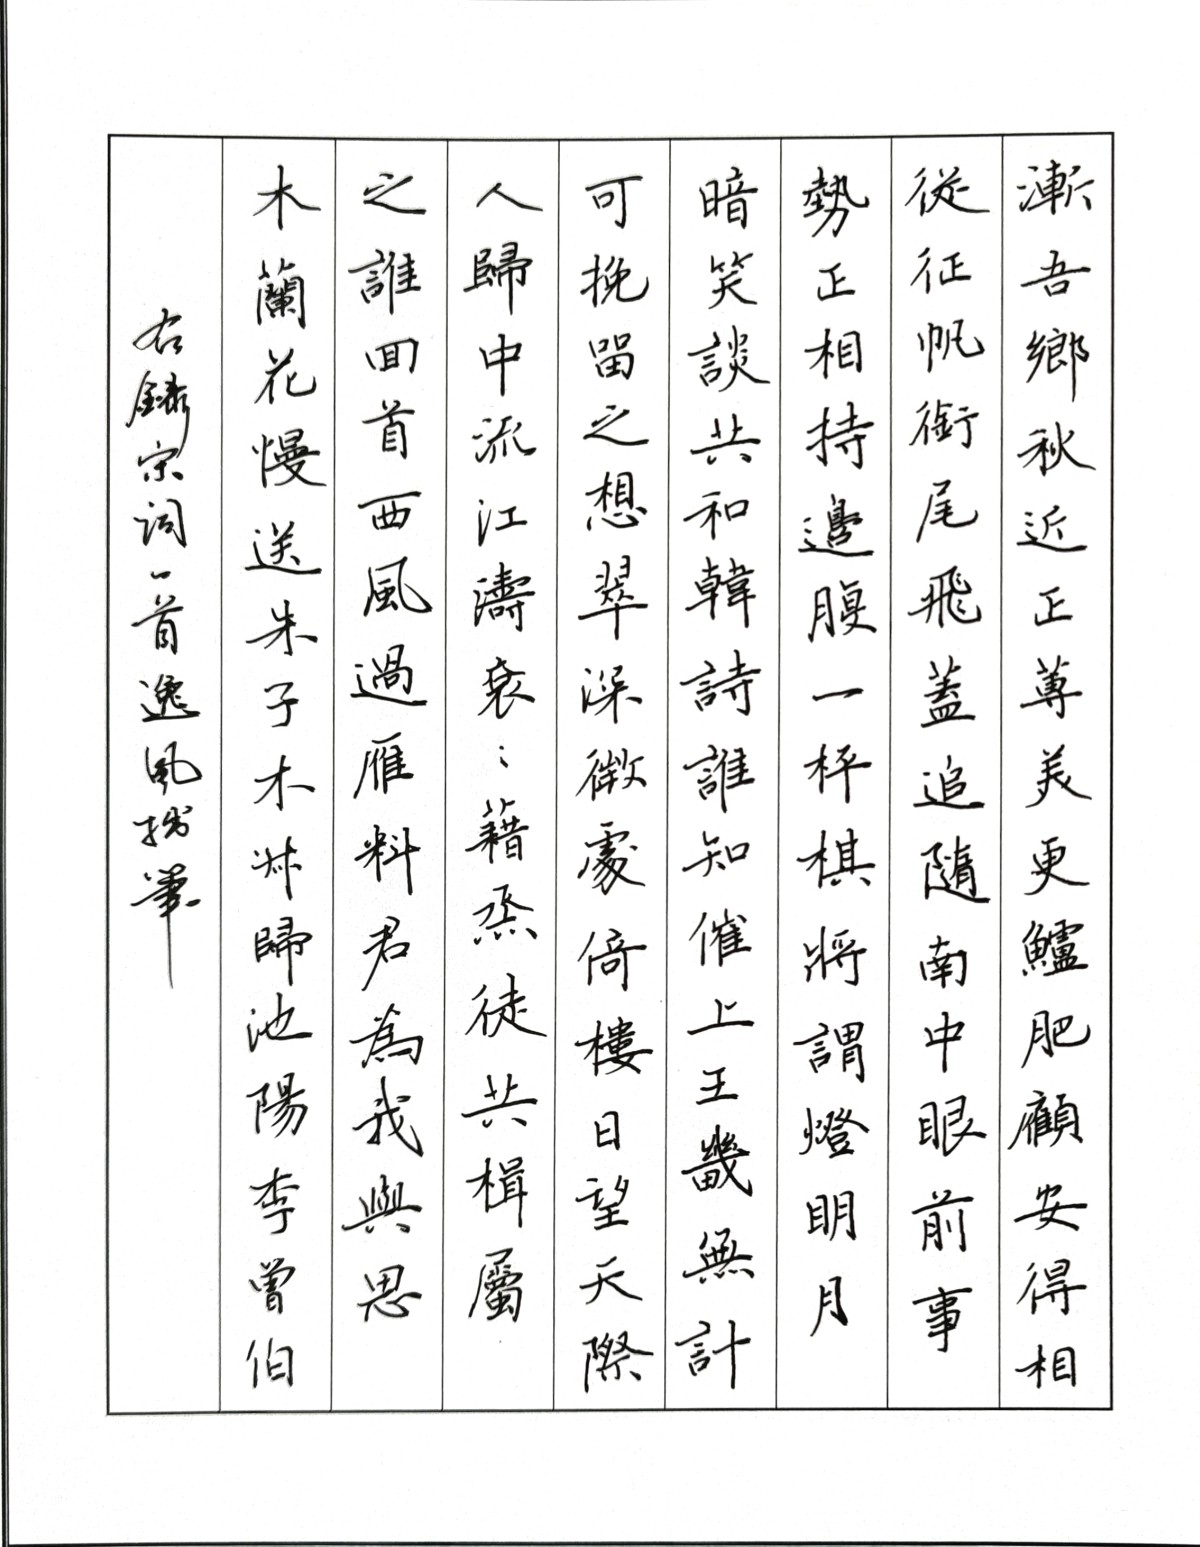 漸吾鄉秋近正蓴美更鱸肥顧安得相
從征帆銜尾飛蓋追隨南中眼前事
勢正相持邊腹一枰棋將謂燈明月
暗笑談共和韓詩誰知催上王畿無計
可挽留之想翠深徵處倚樓日望天際
人歸中流江濤袞:藉烝徒共楫屬
之誰回首西風過雁料君為我與思
木蘭花慢送朱子木叔歸池陽李曾伯
右錄宋詞一首逸風拙筆